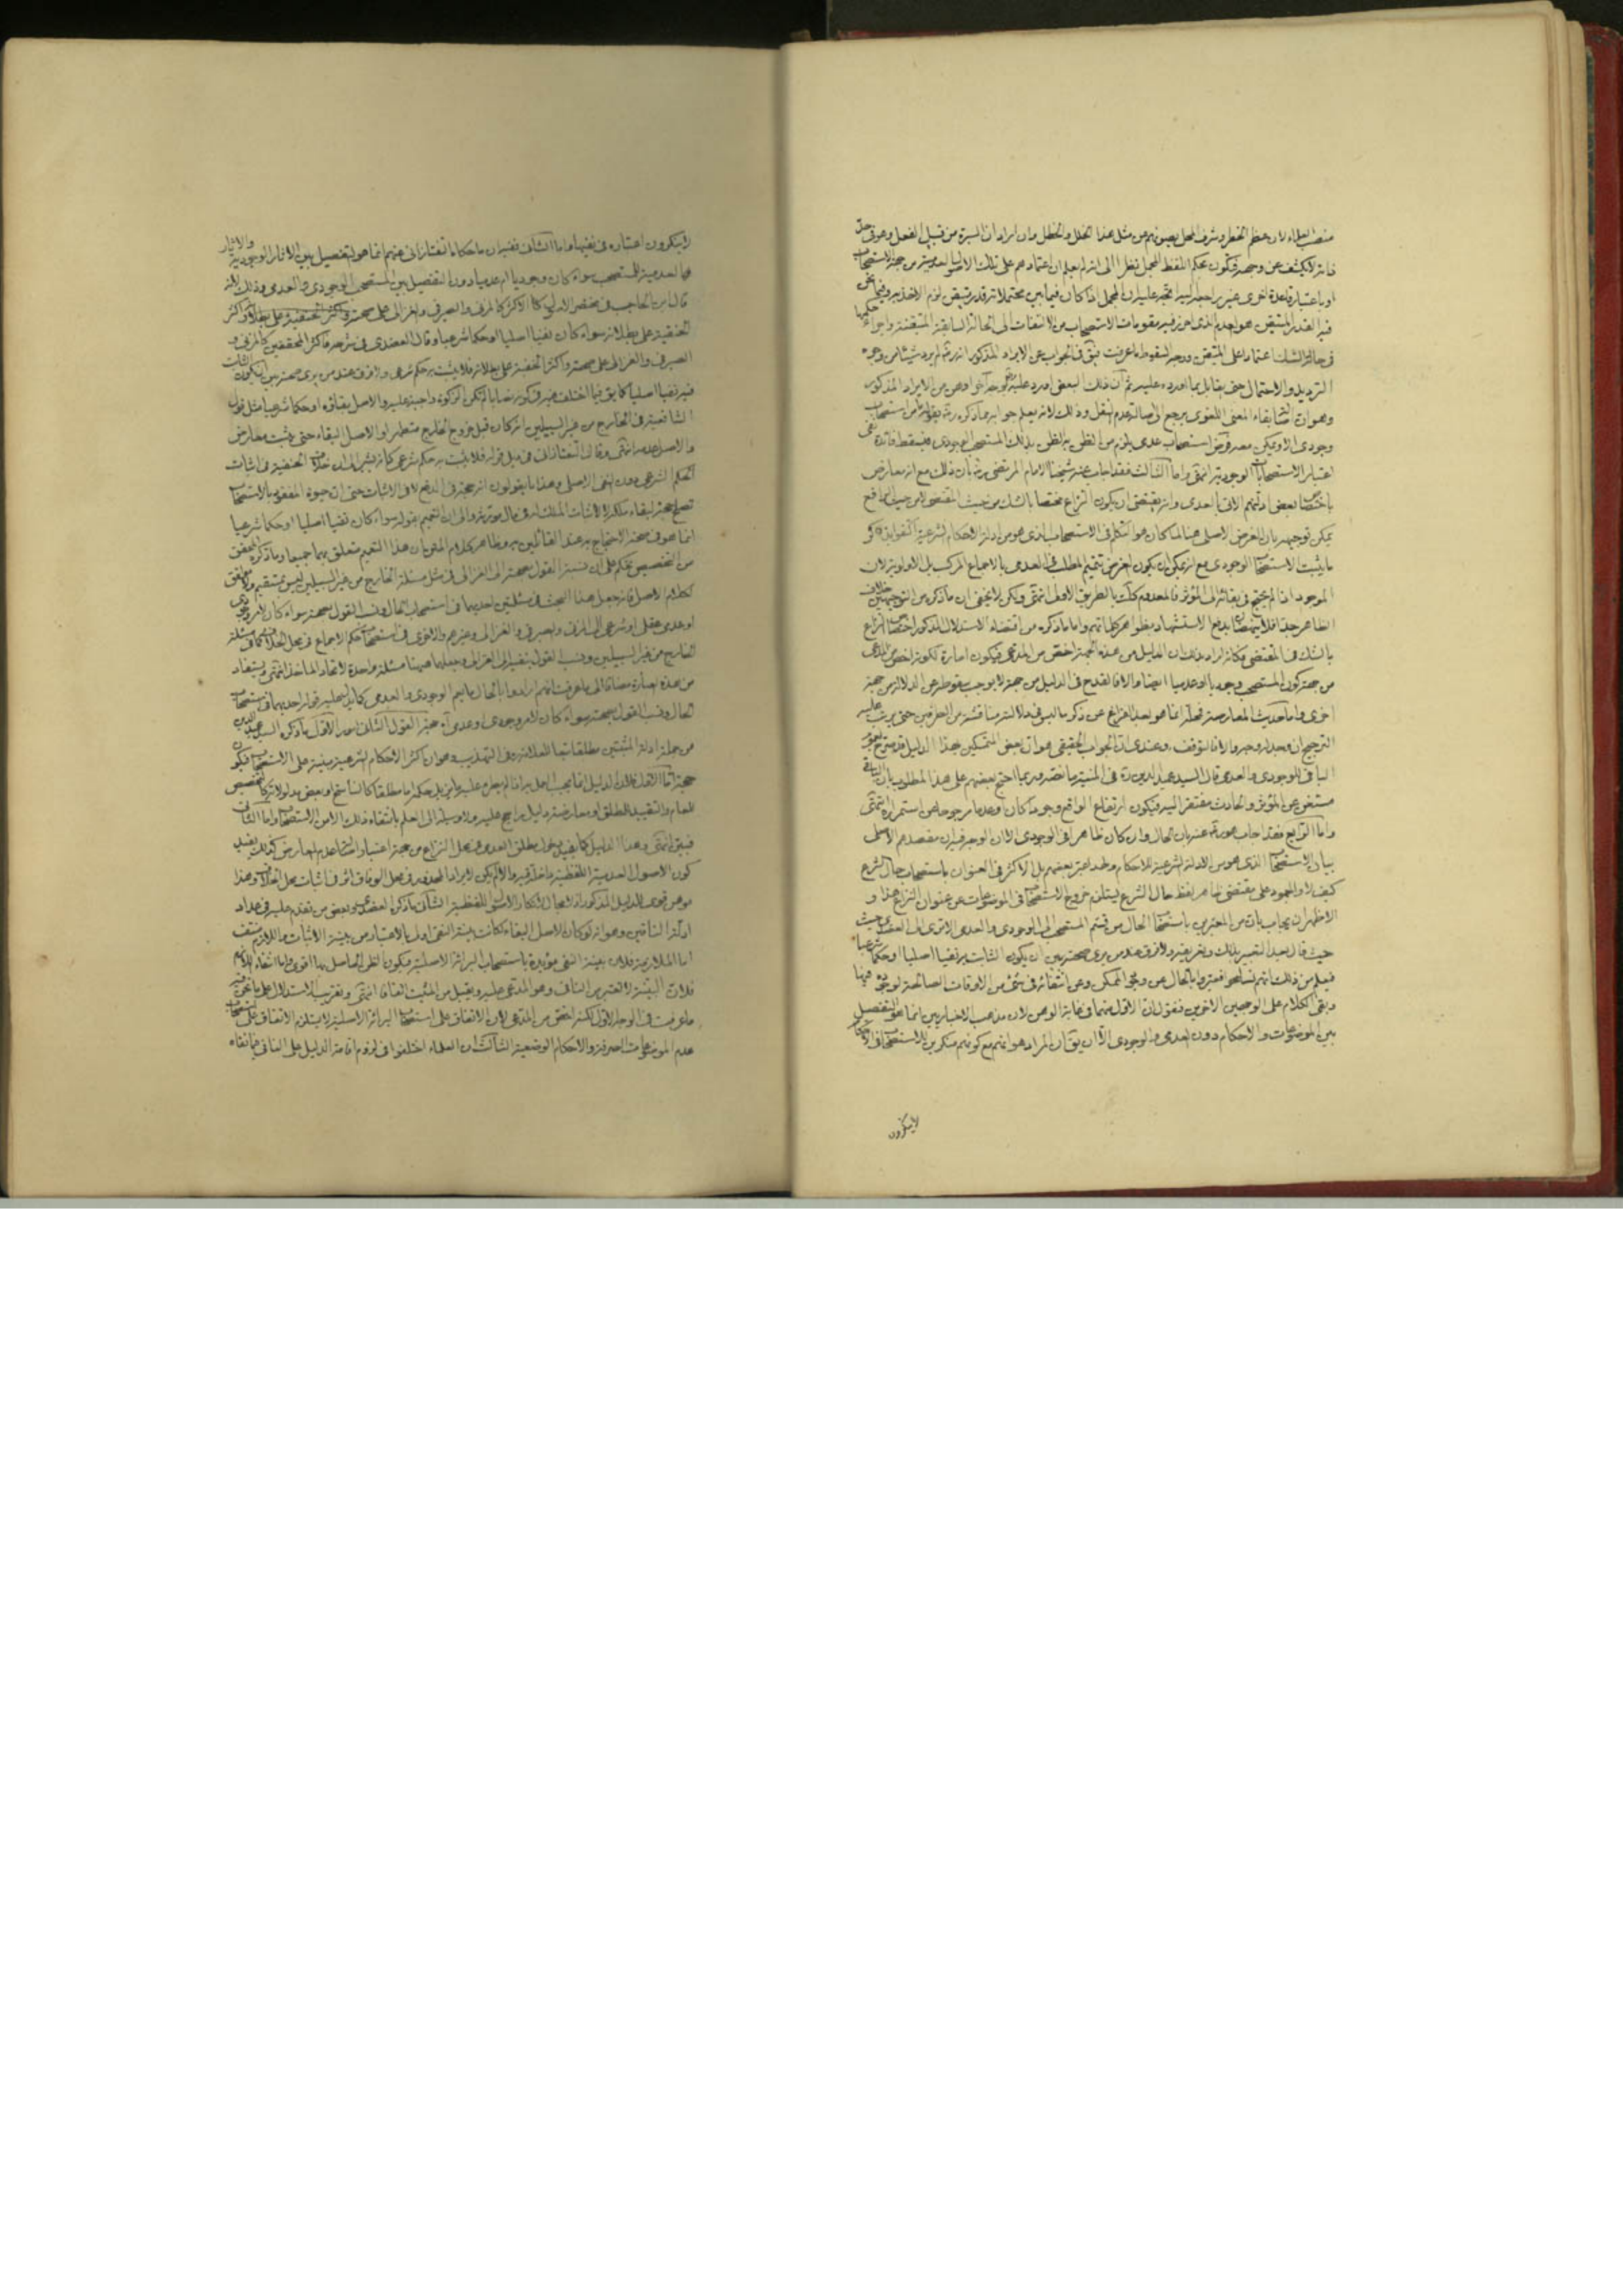 منصب العلماء لان عظم الخطر وشرف المحل يصونهم عن مثل هذا الخلل والخطل وان اراد ان السيرة من قبيل الفعل وهو في حد
ذاته لا يكشف عن وجهه فتكون بحكم اللفظ المجمل نظرا الى انه لم يعلم ان اعتمادهم على تلك الاصول العدمية من جهة الاستصحاب
او باعتبار قاعدة اخرى غير راجعة اليه اتجه عليه ان المجمل اذا كان فيما بين محتملاته قدر متيقن لزم الاخذ به وفيما نحن
فيه القدر المتيقن هو العدم الذي احرز فيه مقومات الاستصحاب من الالتفات الى الحالة السابقة المتيقنة واجراء حكمها
في حالة الشك اعتمادا على المتيقن ووجه السقوط ما عرفت فبقى الجواب عن الايراد المذكور انه ره لم يرد شيئا من وجوه
الترديد والاحتمال حتى يقابل بما اورده عليه ثم ان ذلك البعض اورد عليه بوجه آخر اوهن من الايراد المذكور
وهو ان بقاء المعنى اللغوي يرجع الى اصالة عدم النقل وذلك لانه يعلم جوابه مما ذكره ره بقوله ما من استصحاب
وجودي الا ويمكن معه فرض استصحاب عدمي يلزم من الظن به الظن بذلك المستصحب الوجودي فيسقط فائدة نفي
اعتبار الاستصحابات الوجودية انتهى واما الثالث فقد اجاب عنه شيخنا الامام المرتضى ره بان ذلك مع انه معارض
باختصاص بعض ادلتهم الاتي بالعدمي وانه يقتضي ان يكون النزاع مختصا بالشك من حيث المقتضي لا من حيث الرافع
يمكن توجيهه بان الغرض الاصلي هنا لما كان هو التكلم في الاستصحاب الذي هو من ادلة الاحكام الشرعية اكتفوا بذكر
ما يثبت الاستصحاب الوجودي مع انه يمكن ان يكون الغرض تتميم المطلب في العدمي بالاجماع المركب بل الاولوية لان
الموجود اذا لم يحتج في بقائه الى المؤثر فالمعدوم كذلك بالطريق الاولى انتهى ولكن لا يخفى ان ما ذكره من التوجيهين خلاف
الظاهر جدا فلا ينهضان بدفع الاستشهاد بظواهر كلماتهم واما ما ذكره من اقتضاء الاستدلال المذكور اختصاص النزاع
بالشك في المقتضي فكانه اراد بذلك ان الدليل من هذه الجهة اخص من المدعى فيكون امارة لكونه اخص من المدعى
من جهة كون المستصحب وجوديا او عدميا ايضا والا فالقدح في الدليل من جهة لا يوجب سقوطه عن الدلالة من جهة
اخرى واما حديث المعارضة فمحله انما هو بعد الفراغ عن ذكر ما ليس في دلالته مناقشة من الطرفين حتى يرتب عليه
الترجيح ان وجد له وجه والا فالتوقف وعندي ان الجواب الحقيقي هو ان بعض المتمسكين بهذا الدليل قد صرح بعموم
الباقي للوجودي والعدمي قال السيد عميد الدين ره في المنية ما نصه وربما احتج بعضهم على هذا المطلوب بان الباقي
مستغن عن المؤثر والحادث مفتقر اليه فيكون ارتفاع الواقع وجودا كان او عدما مرجوحا من استمراره انتهى
واما الرابع فقد اجاب هو ره عنه بان الحال وان كان ظاهرا في الوجودي الا ان الوجه فيه ان مقصدهم الاصلي
بيان الاستصحاب الذي هو من الادلة الشرعية للاحكام ولهذا عبر بعضهم بل الاكثر في العنوان باستصحاب حال الشرع
كيف لا والجمود على مقتضى ظاهر لفظ حال الشرع يستلزم خروج الاستصحاب في الموضوعات عن عنوان النزاع هذا و
الاظهر ان يجاب بان من المعبرين باستصحاب الحال من قسم المستصحب الى الوجودي والعدمي الا ترى الى العضدي حيث
حيث قال بعد التعبير بذلك وتعريفه ولا فرق عند من يرى صحته بين ان يكون الثابت به نفيا اصليا او حكما شرعيا
فيعلم من ذلك انهم تسامحوا فعبروا بالحال عن وجود الممكن وعن انتفائه في شيء من الاوقات الصالحة لوجوده فيها
وبقي الكلام على الوجهين الاخرين فنقول ان الاول منهما في غاية الوهن لان مذهب الاخباريين انما هو التفصيل
بين الموضوعات والاحكام دون العدمي والوجودي الا ان يق ان المراد هو انهم مع كونهم منكرين للاستصحاب في الاحكام
لا ينكرون
لا ينكرون اعتباره في نفيها واما الثاني ففيه ان ما حكاه التفتازاني عنهم انما هو التفصيل بين الاثار الوجودية والاثار
العدمية للمستصحب سواء كان وجوديا ام عدميا دون التفصيل بين المستصحب الوجودي والعدمي وذلك لانه
قال ابن الحاجب في مختصر الاصول كالاكثر كالمزني والصيرفي والغزالي على صحته واكثر الحنفية على بطلانه واكثر
الحنفية على بطلانه سواء كان نفيا اصليا او حكما شرعيا وقال العضدي في شرحه فاكثر المحققين كالمزني و
الصيرفي والغزالي على صحته واكثر الحنفية على بطلانه فلا يثبت به حكم شرعي ولا فرق عند من يرى صحته بين ان يكون الثابت
فيه نفيا اصليا كما يق فيما اختلف فيه في كونه نصابا لم تكن الزكوة واجبة عليه والاصل بقاؤه او حكما شرعيا مثل قول
الشافعية في الخارج من غير السبيلين انه كان قبل خروج الخارج متطهرا والاصل البقاء حتى يثبت معارض
والاصل عدمه انتهى وقال التفتازاني في ذيل قوله فلا يثبت به حكم شرعي كانه يشير الى ان خلاف الحنفية في اثبات
الحكم الشرعي دون النفي الاصلي وهذا ما يقولون انه حجة في الدفع لا في الاثبات حتى ان حيوة المفقود بالاستصحاب
تصلح حجة لبقاء ملكه لا لاثبات الملك له في مال مورثه والى ان التعميم بقوله سواء كان نفيا اصليا او حكما شرعيا
انما هو في صحة الاحتجاج به عند القائلين به وظاهر كلام المتن ان هذا التعميم متعلق بهما جميعا وما ذكره المحقق
من التخصيص تحكم على ان نسبة القول بصحته الى الغزالي في مثل مسئلة الخارج من غير السبيلين ليس بمستقيم ولا موافق
لكلام الاصل فانه جعل هذا البحث في مسئلتين احديهما في استصحاب الحال ونسب القول بصحته سواء كان لامر وجودي
او عدمي عقلي او شرعي الى المزني والصيرفي والغزالي وغيرهم والاخرى في استصحاب حكم الاجماع في محل الخلاف كما في مسئلة
الخارج من غير السبيلين ونسب القول بنفيه الى الغزالي وجعلها هيهنا مسئلة واحدة لاتحاد الماخذ انتهى ويستفاد
من هذه العبارة مضافا الى ما عرفت انهم ارادوا بالحال ما يعم الوجودي والعدمي كما يدل عليه قوله احديهما في استصحاب
الحال ونسب القول بصحته سواء كان لامر وجودي وعدمي آه حجة القول الثاني امور الاول ما ذكره السيد عميد الدين
من جملة ادلة المثبتين مطلقا تبعا للعلامة ره في التهذيب وهو ان اكثر الاحكام الشرعية مبنية على الاستصحاب فيكون
حجة اما الاول فلان الدليل انما يجب العمل به اذا لم يطرء عليه ما يزيل حكمه اما مطلقا كالناسخ او بعض مدلولاته كالتخصيص
للعام والتقييد للمطلق او معارضة دليل راجح عليه ولا وسيلة الى العلم بانتفاء ذلك الا من الاستصحاب واما الثاني
فبين انتهى وهذا الدليل كما يفيد دخول مطلق العدمي في محل النزاع من جهة اعتبار اصالة عدم المعارض كذلك يفيد
كون الاصول العدمية اللفظية داخلة فيه والا لم يكن لايراد المحذور في محل الوفاق اثر في اثبات محل الخلاف وهذا
موهن قوي للدليل المذكور اذ لا مجال لانكار الاصول اللفظية الثاني ما ذكره العضدي وبعض من تقدم عليه في عداد
ادلة النافين وهو انه لو كان الاصل البقاء لكانت بينة النفي اولى بالاعتبار من بينة الاثبات واللازم منتف
اما الملازمة فلان بينة النفي مؤيدة باستصحاب البرائة الاصلية فيكون الظن الحاصل بها اقوى واما انتفاء اللازم
فلان البينة لا تعتبر من النافي وهو المدعى عليه ويقبل من المثبت اتفاقا انتهى وتقريب الاستدلال على ما نحن فيه
ما عرفت في الوجه الاول لكنه اخص من المدعى لان الاتفاق على استصحاب البرائة الاصلية لا يستلزم الاتفاق على استصحاب
عدم الموضوعات الصرفة والاحكام الوضعية الثالث ان العلماء اختلفوا في لزوم اقامة الدليل على النافي لما نفاه